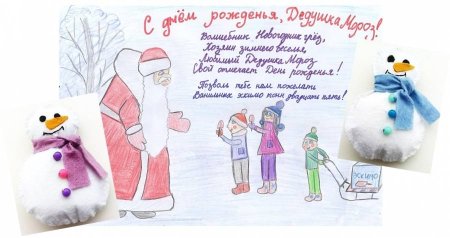 С днём рожденья, Дедушка Мороз!
Волшебник Новогодних грёз,
Хозяин зимнего веселья,
Любимый Дедушка Мороз
Свой отмечает День рожденья!
Позволь тебе нам пожелать
Ванильных эскимо пони двадцать пять!
ЭСКИМО